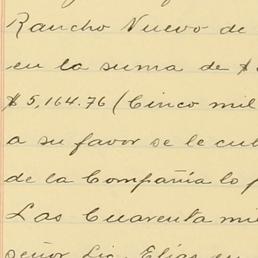 Rancho Nuevo de
en la suma de $
$5,164.76 (Cinco mil
a su favor se le cu
de la Compañía lo p
Las Cuarenta mi
señor Lic. Elías en